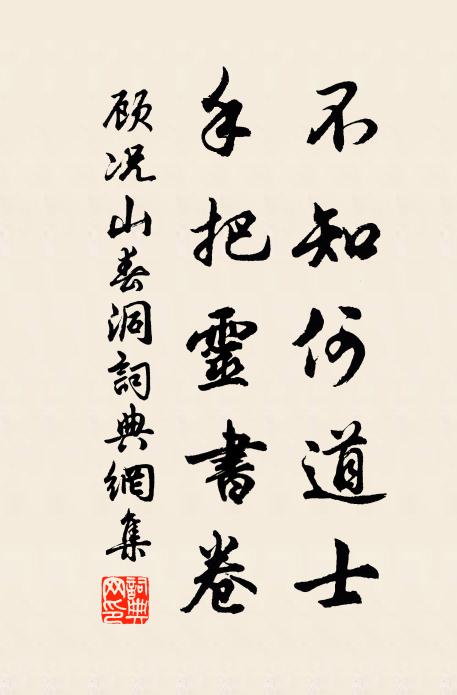 不知何道士
手把靈書卷
顾况山春洞詞典網集
詞典网印